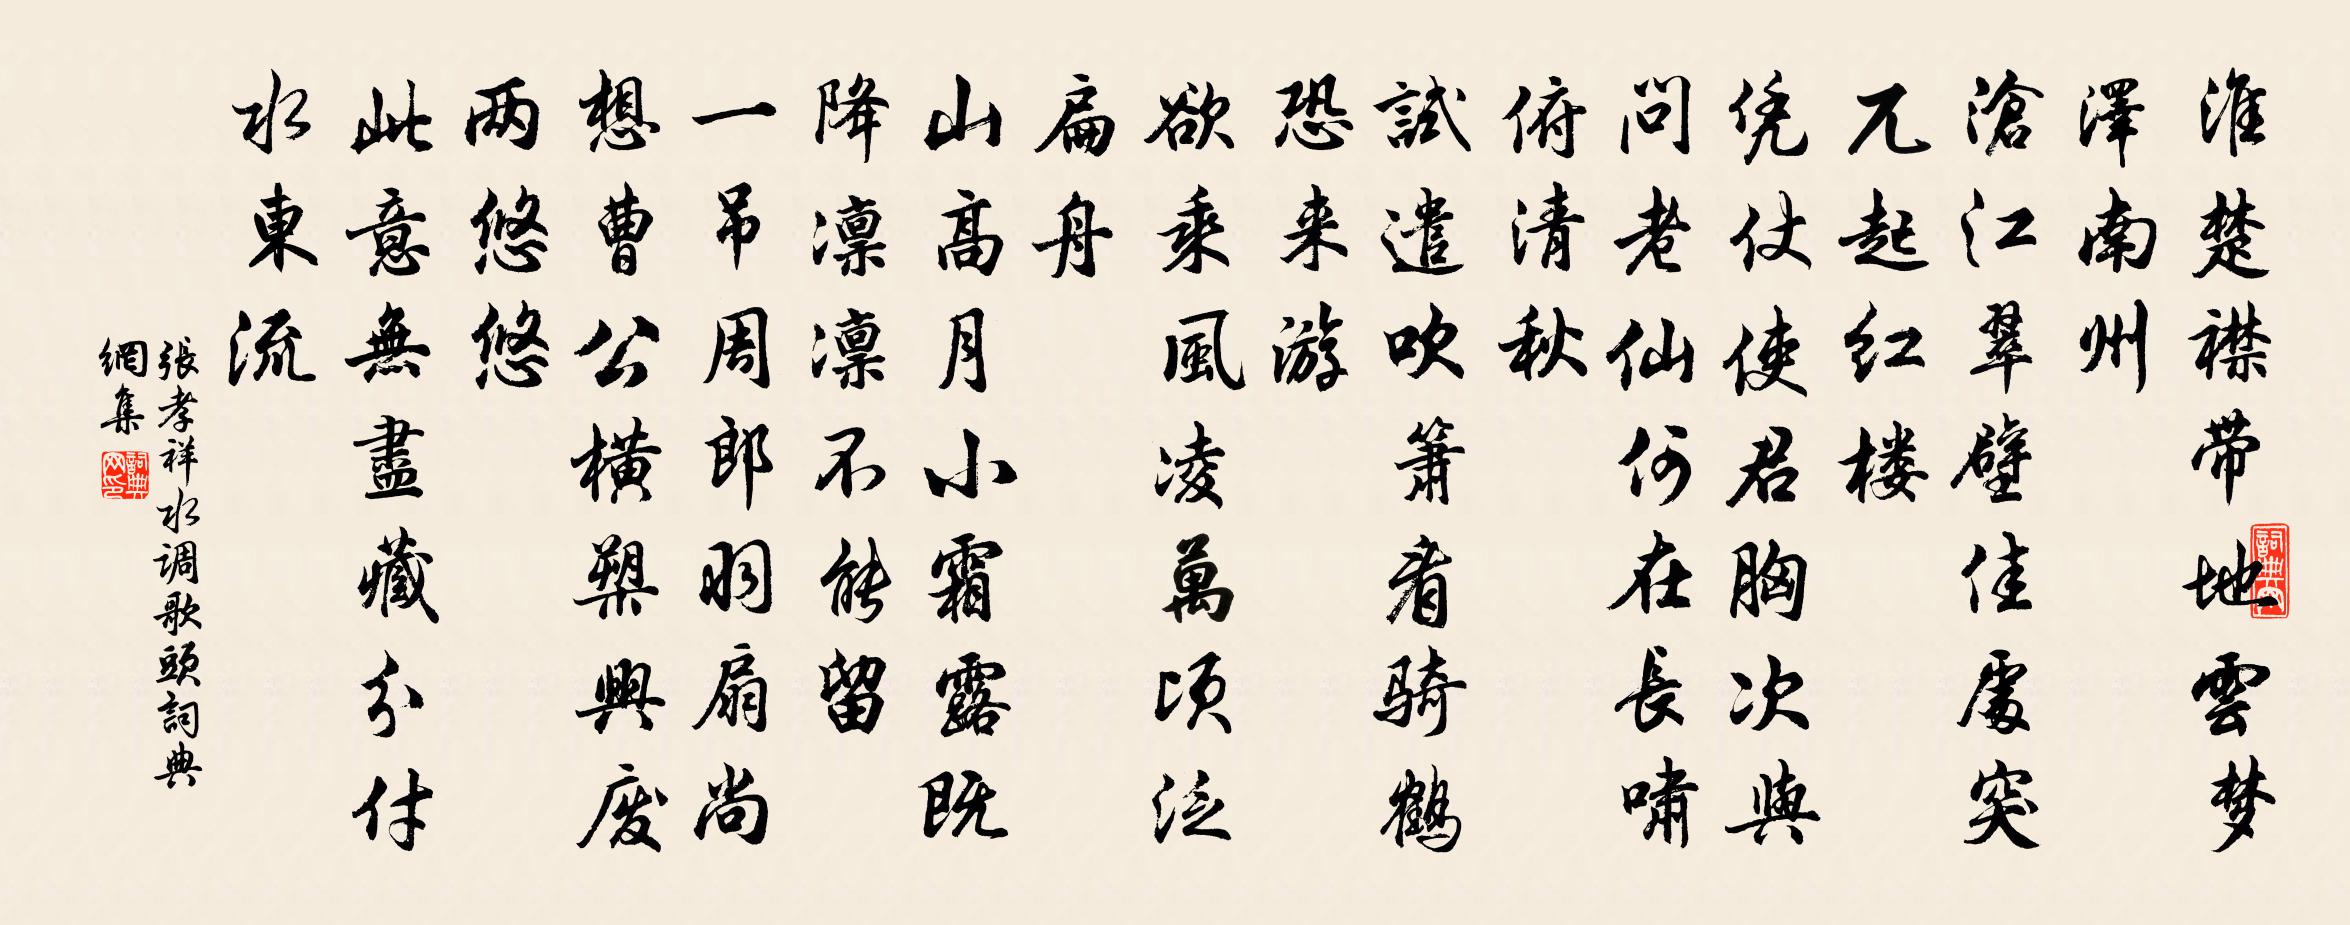 淮楚襟带地雲梦
澤南州
滄江翠壁佳處突
兀起红楼
凭仗使君胸次與
问老仙何在長啸
俯清秋
試遣吹箫看骑鹤
恐来游
欲乘風凌萬顷泛
扁舟
山高月小霜露既
降凛凛不能留
一吊周郎羽扇尚
想曹公横槊興废
两悠悠
此意無盡藏分付
水東流
張孝祥水调歌頭詞典
網集